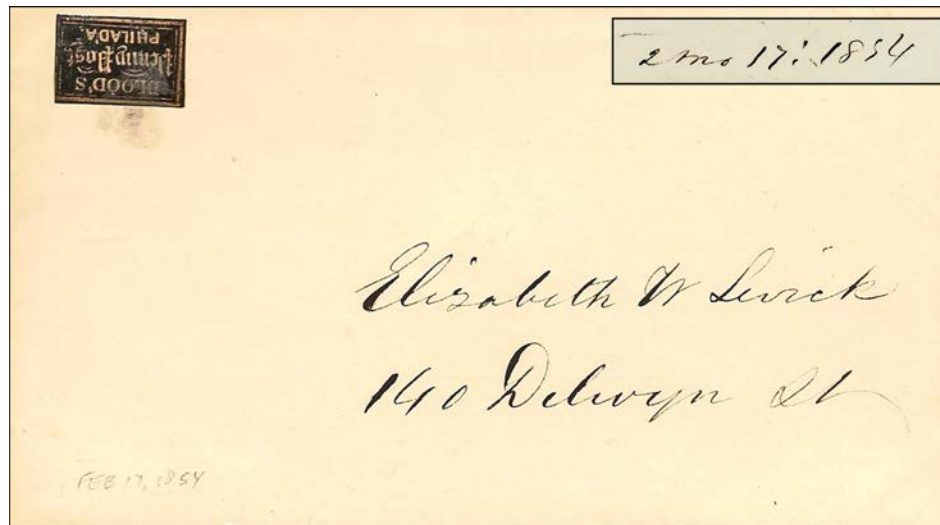 BLOOD'S
Penny Post
PHILADA.
2 mo 17: 1854
Elizabeth W Levick
140 Delwyn St
FEB 17, 1854